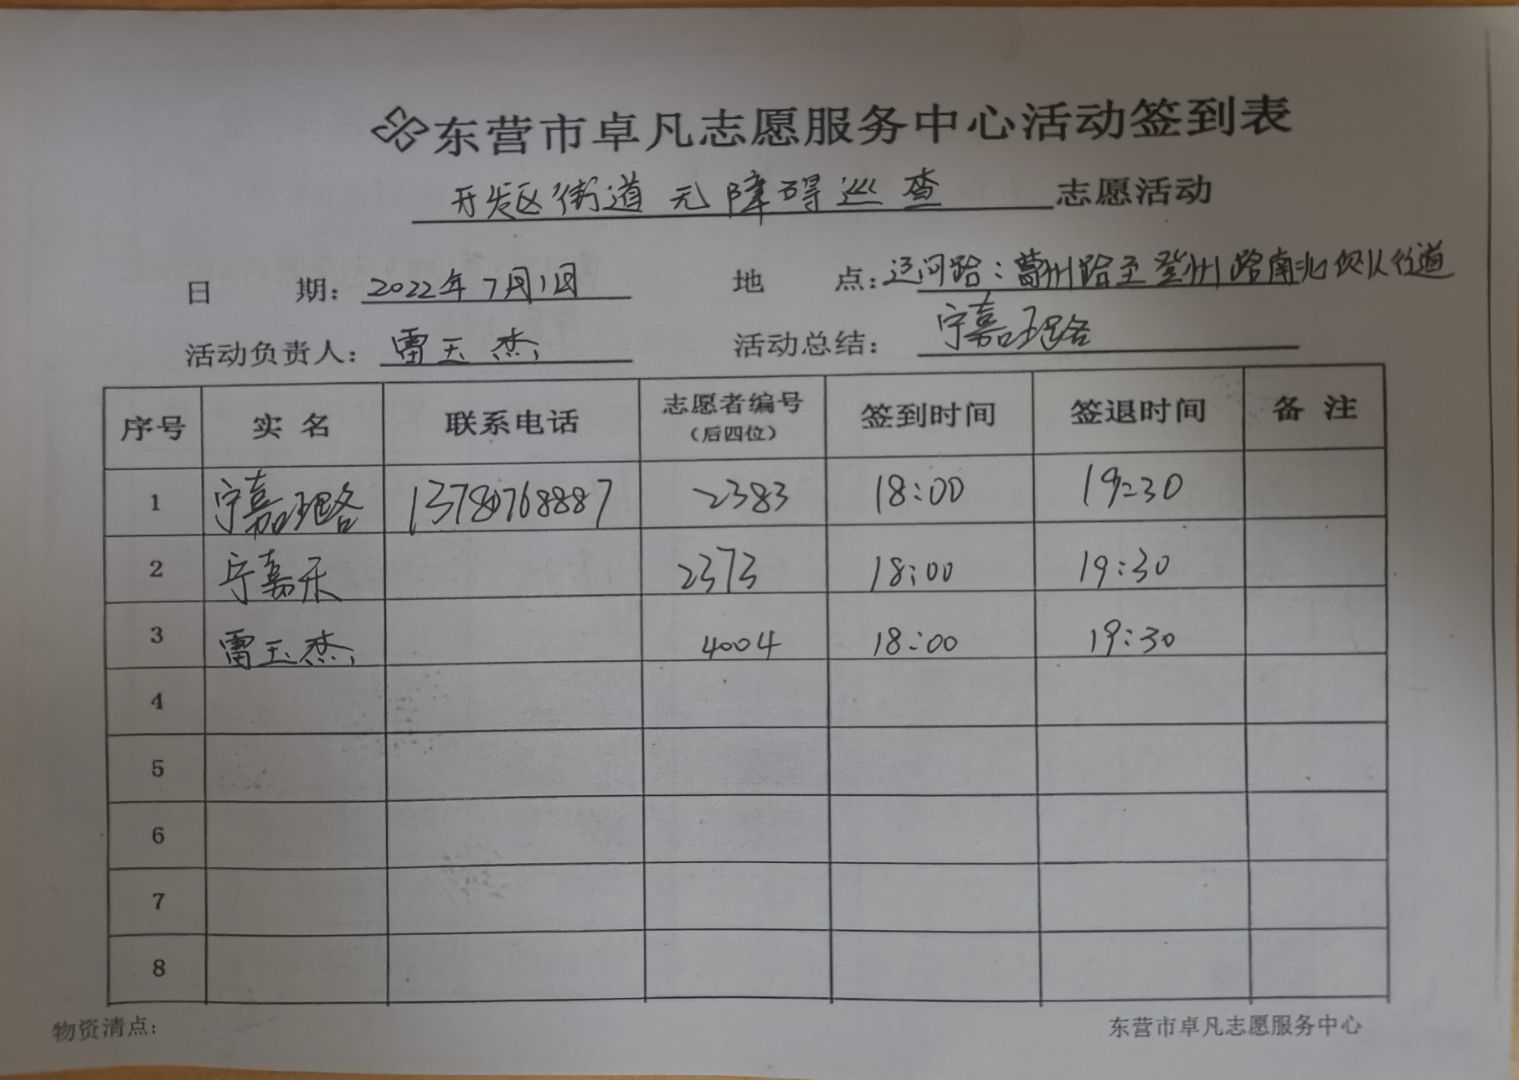 东营市卓凡志愿服务中心活动签到表
开发区街道无障碍巡查 志愿活动
日 期: 2022年7月1日 地 点: 运河路:莒州路至登州路南北侧人行道
活动负责人: 雷玉杰 活动总结: 宁嘉璐
序号 实名 联系电话 志愿者编号(后四位) 签到时间 签退时间 备注
1 宁嘉璐 13780768887 2383 18:00 19:30
2 宁嘉禾 2373 18:00 19:30
3 雷玉杰 4004 18:00 19:30
4
5
6
7
8
物资清点: 东营市卓凡志愿服务中心